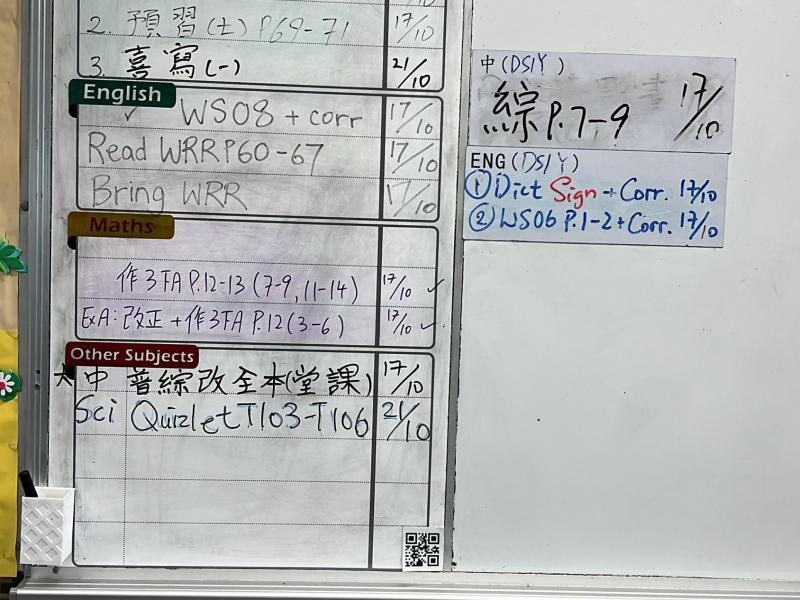 2. 預習(士) P.69-71 17/10
3. 喜寫(一) 21/10
English
✓ WS08 + corr 17/10
Read WRR P60-67 17/10
Bring WRR 17/10
Maths
作3TA P.12-13 (7-9, 11-14) 17/10 ✓
ExA: 改正 + 作3TA P.12 (3-6) 17/10 ✓
Other Subjects
大中 普綜改全本(堂課) 17/10
Sci Quizlet T103-T106 21/10
中 (DS1Y)
綜 P.7-9 17/10
ENG (DS1Y)
① Dict Sign + Corr. 17/10
② WS06 P.1-2 + Corr. 17/10